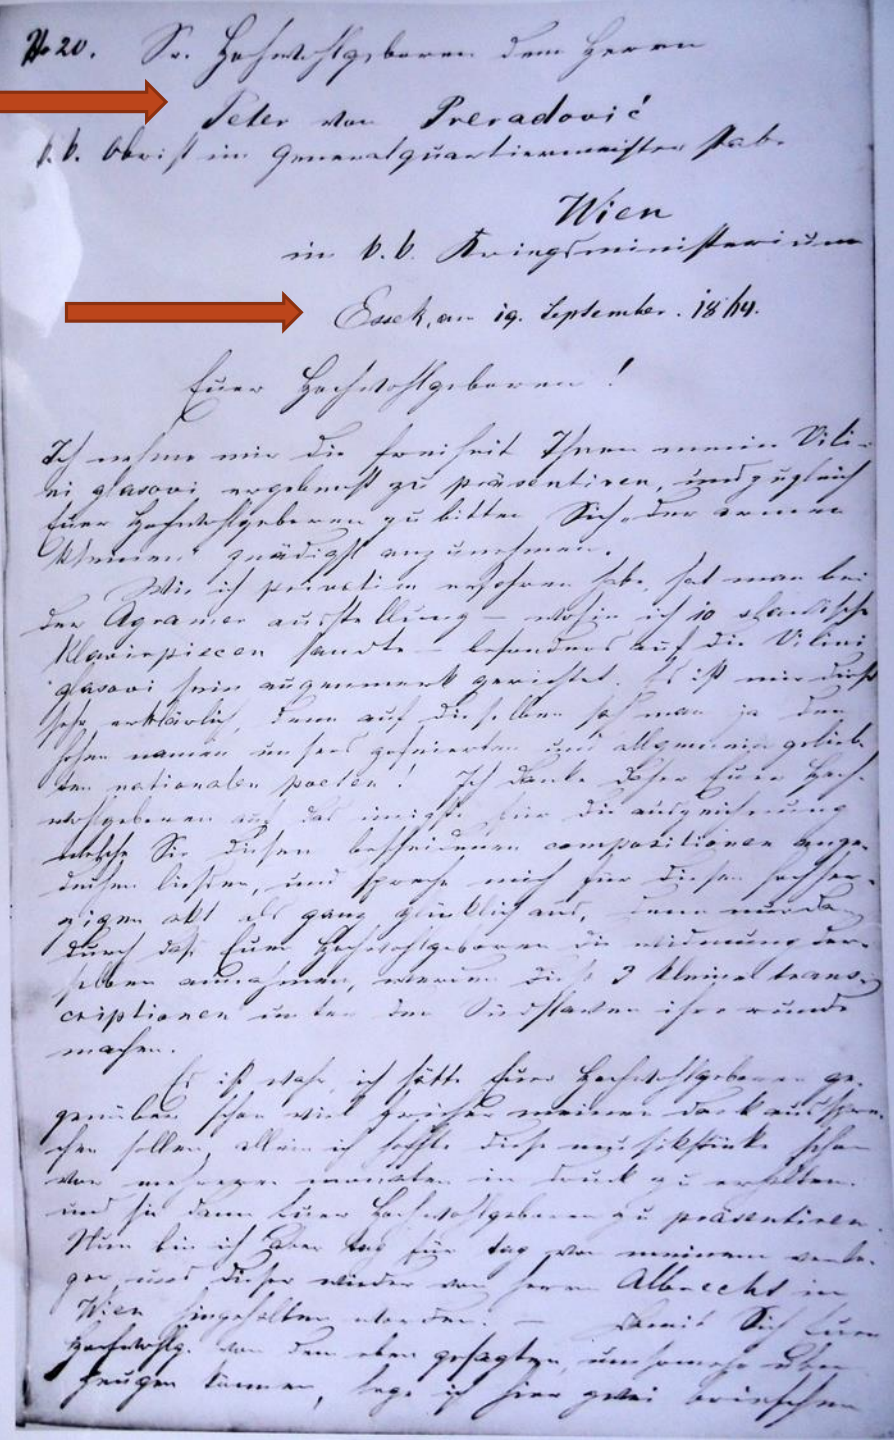 No 20. Sr. Hochwohlgeboren dem Herrn
Peter von Preradović
k. k. Obrist im Generalquartiermeister Stabe
Wien
im k. k. Kriegsministerium
Essek, am 19. September. 1864.
Euer Hochwohlgeboren!
Ich nehme mir die Freiheit Ihnen meine Vili-
ni glasovi ergebenst zu präsentiren, und zugleich
Euer Hochwohlgeboren zu bitten Sich „der armen
Kleinen“ gnädigst anzunehmen.
Wie ich privatim erfahren habe, hat man bei
der Agramer ausstellung – wohin ich 10 slavische
Klavierpiecen sandte – besonders auf die Vilini
glasovi sein augenmerk gerichtet. Es ist mir dieß
sehr erklärlich, denn auf dieselben sah man ja den
hohen namen unsers gefeierten und allgemein gelieb-
ten nationalen poeten! Ich danke daher Euer Hoch-
wohlgeboren auf das innigste für die auszeichnung
welche Sie diesen bescheidenen compositionen ange-
deihen ließen, und spreche mich für diesen
akt als ganz glücklich aus, denn nur da-
durch daß Euer Hochwohlgeboren die widmung der-
selben annahmen, werden diese 3 kleine trans-
criptionen unter den Südslaven ihre runde
machen.
Es ist wahr, ich hätte Euer Hochwohlgeboren ge-
genüber schon viel früher meinen dank ausspre-
chen sollen, allein ich hoffte diese musikstücke schon
vor mehreren monaten in druck zu erhalten.
und sie dann Euer Hochwohlgeboren zu präsentiren.
Nun bin ich aber tag für tag von meinem verle-
ger, und dieser wieder von Herrn Albrecht in
Wien hingehalten worden. – Damit Sich Euer
Hochwohlg. von dem eben gesagten, umsomehr über-
zeugen können, lege ich hier zwei briefchen